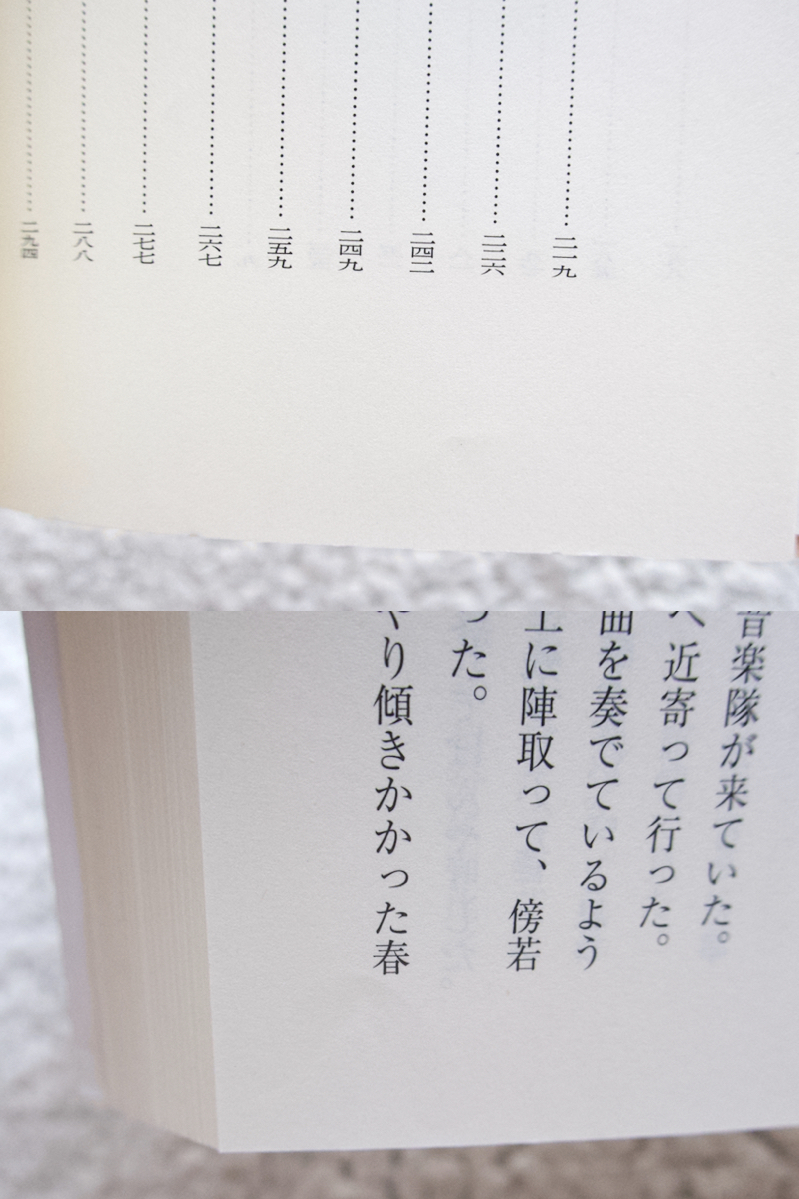 二一九
二三六
二四二
二四九
二五九
二六七
二七七
二八八
二九四
音楽隊が来ていた。
へ近寄って行った。
曲を奏でているよう
上に陣取って、傍若
った。
やり傾きかかった春